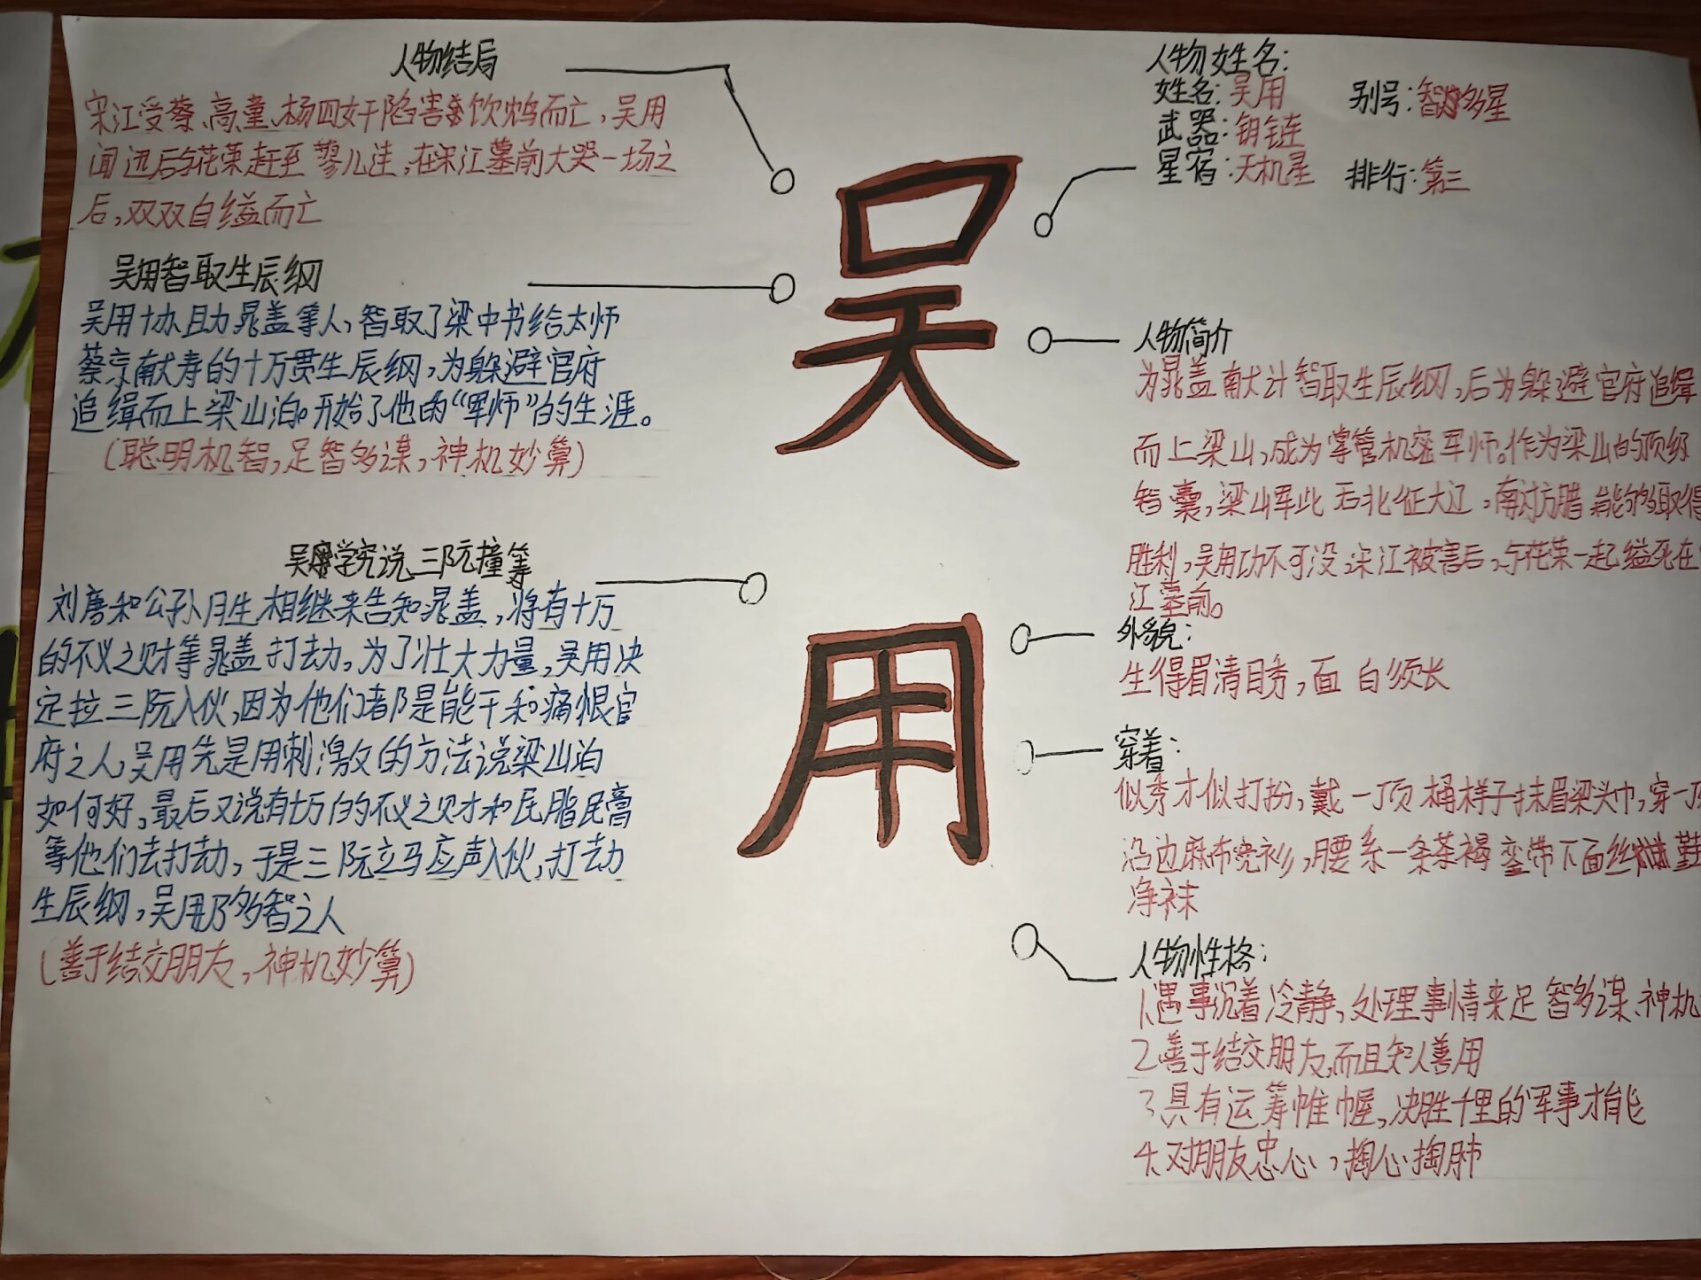 人物结局
宋江受蔡、高、童、杨四奸陷害饮鸩而亡,吴用
闻迅后与花荣赶至蓼儿洼,在宋江墓前大哭一场之
后,双双自缢而亡
吴用智取生辰纲
吴用协助晁盖等人,智取了梁中书给太师
蔡京献寿的十万贯生辰纲,为躲避官府
追缉而上梁山泊。开始了他的“军师”的生涯。
(聪明机智,足智多谋,神机妙算)
吴学究说三阮撞筹
刘唐和公孙胜相继来告知晁盖,将有十万
的不义之财等晁盖打劫,为了壮大力量,吴用决
定拉三阮入伙,因为他们都是能干和痛恨官
府之人,吴用先是用刺激的方法说梁山泊
如何好,最后又说有十万的不义之财和民脂民膏
等他们去打劫,于是三阮立马应声入伙,打劫
生辰纲,吴用乃多智之人
(善于结交朋友,神机妙算)
吴用
人物姓名:
姓名:吴用 别号:智多星
武器:钥链
星宿:天机星 排行:第三
人物简介
为晁盖献计智取生辰纲,后为躲避官府追缉
而上梁山,成为掌管机密军师。作为梁山的顶级
智囊,梁山军此后北征大辽,南讨方腊能够取得
胜利,吴用功不可没宋江被害后,与花荣一起缢死在
江墓前。
外貌:
生得眉清目秀,面白须长
穿着:
似秀才似打扮,戴一顶桶样子抹眉梁头巾,穿一
沿边麻布宽衫,腰系一条茶褐銮带下面丝鞋
净袜
人物性格:
1.遇事沉着冷静,处理事情来足智多谋、神机
2.善于结交朋友,而且知人善用
3.具有运筹帷幄,决胜千里的军事才能
4.对朋友忠心,掏心掏肺